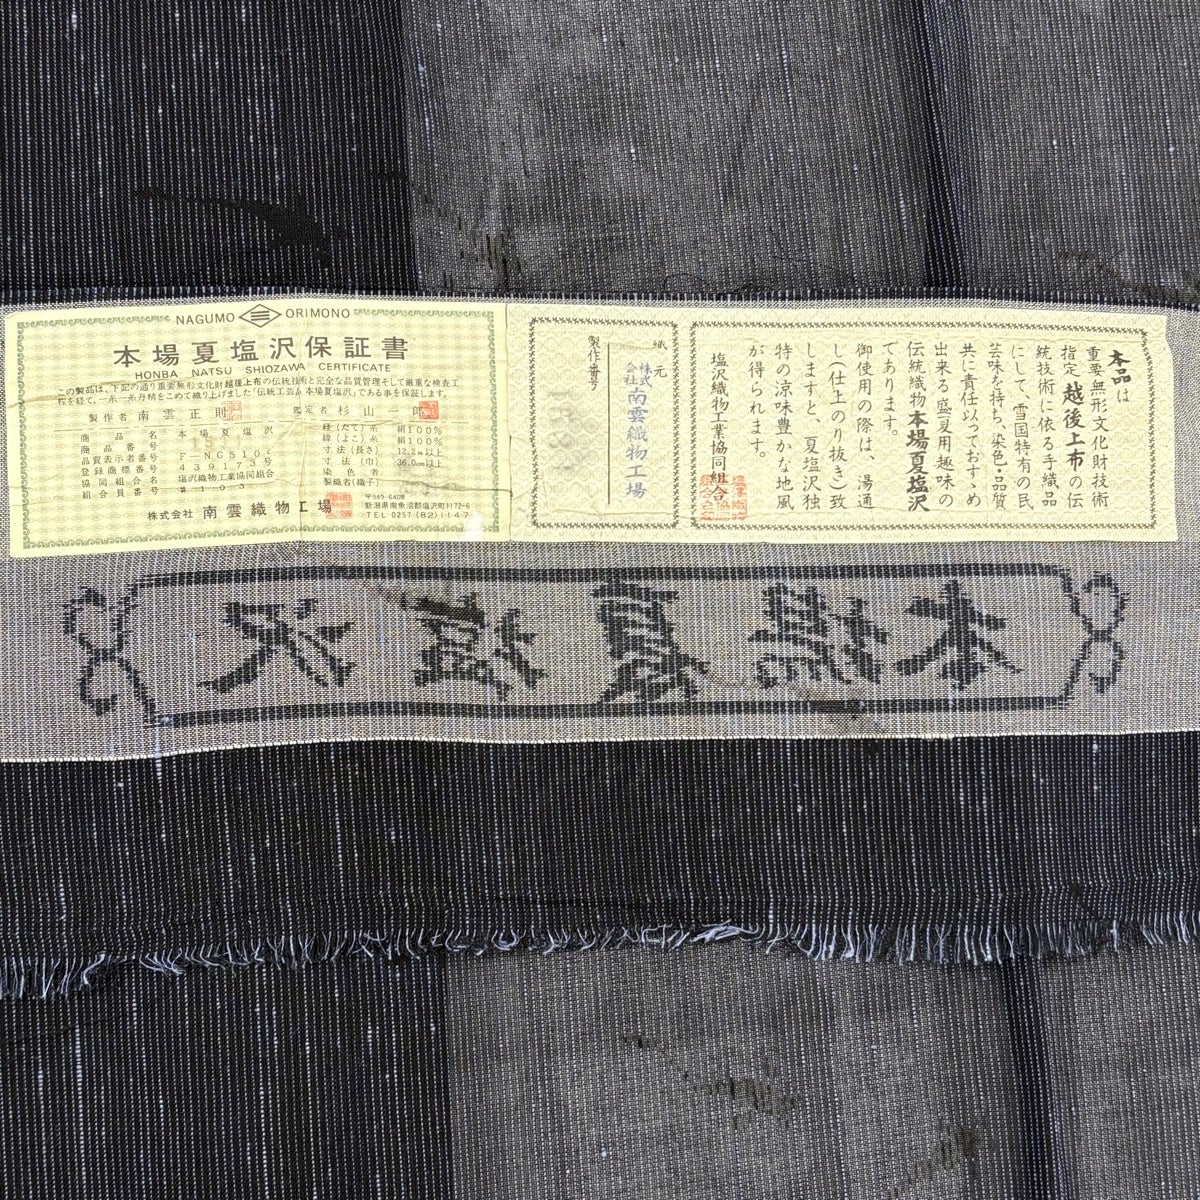 NAGUMO ORIMONO
本場夏塩沢保証書
HONBA NATSU SHIOZAWA CERTIFICATE
この製品は、下記の通り重要無形文化財越後上布の伝統技術と完全な品質管理そして厳重な検査工
程を経て、一糸一糸丹精をこめて織り上げました「伝統工芸品本場夏塩沢」である事を保証します。
製作者 南雲正則 鑑定者 杉山一郎
商品名 本場夏塩沢
商品番号
品質表示者番号 F-NG510
登録商標番号 439173号
協同組合名 塩沢織物工業協同組合
組合員番号 #103
経(たて)糸 絹100%
緯(よこ)糸 絹100%
寸法(長さ) 12.2m以上
寸法(巾) 36.0cm以上
染色者
製織者(織子)
株式会社 南雲織物工場
〒949-6408
新潟県南魚沼郡塩沢町1172-6
TEL 0257(82)1147
織元
株式会社 南雲織物工場
製作番号
本品は
重要無形文化財技術
指定越後上布の伝
統技術に依る手織品
にして、雪国特有の民
芸味を持ち、染色・品質
共に責任以っておすすめ
出来る盛夏用趣味の
伝統織物本場夏塩沢
であります。
御使用の際は、湯通
し(仕上のり抜き)致
しますと、夏塩沢独
特の涼味豊かな地風
が得られます。
塩沢織物工業協同組合
本場夏塩沢